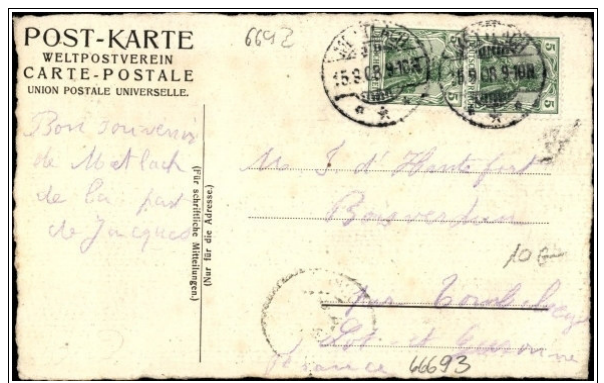 POST-KARTE
WELTPOSTVEREIN
CARTE-POSTALE
UNION POSTALE UNIVERSELLE.
6692
15.9.08.9-10
15.9.08.9-10
5 5
5 5
Bon souvenir
de Metlach
de la part
de Jacques
(Für schriftliche Mitteilungen.)
(Nur für die Adresse.)
M J d'Hautefort
Boisverdun
10
par
Lot et Garonne
France
66693